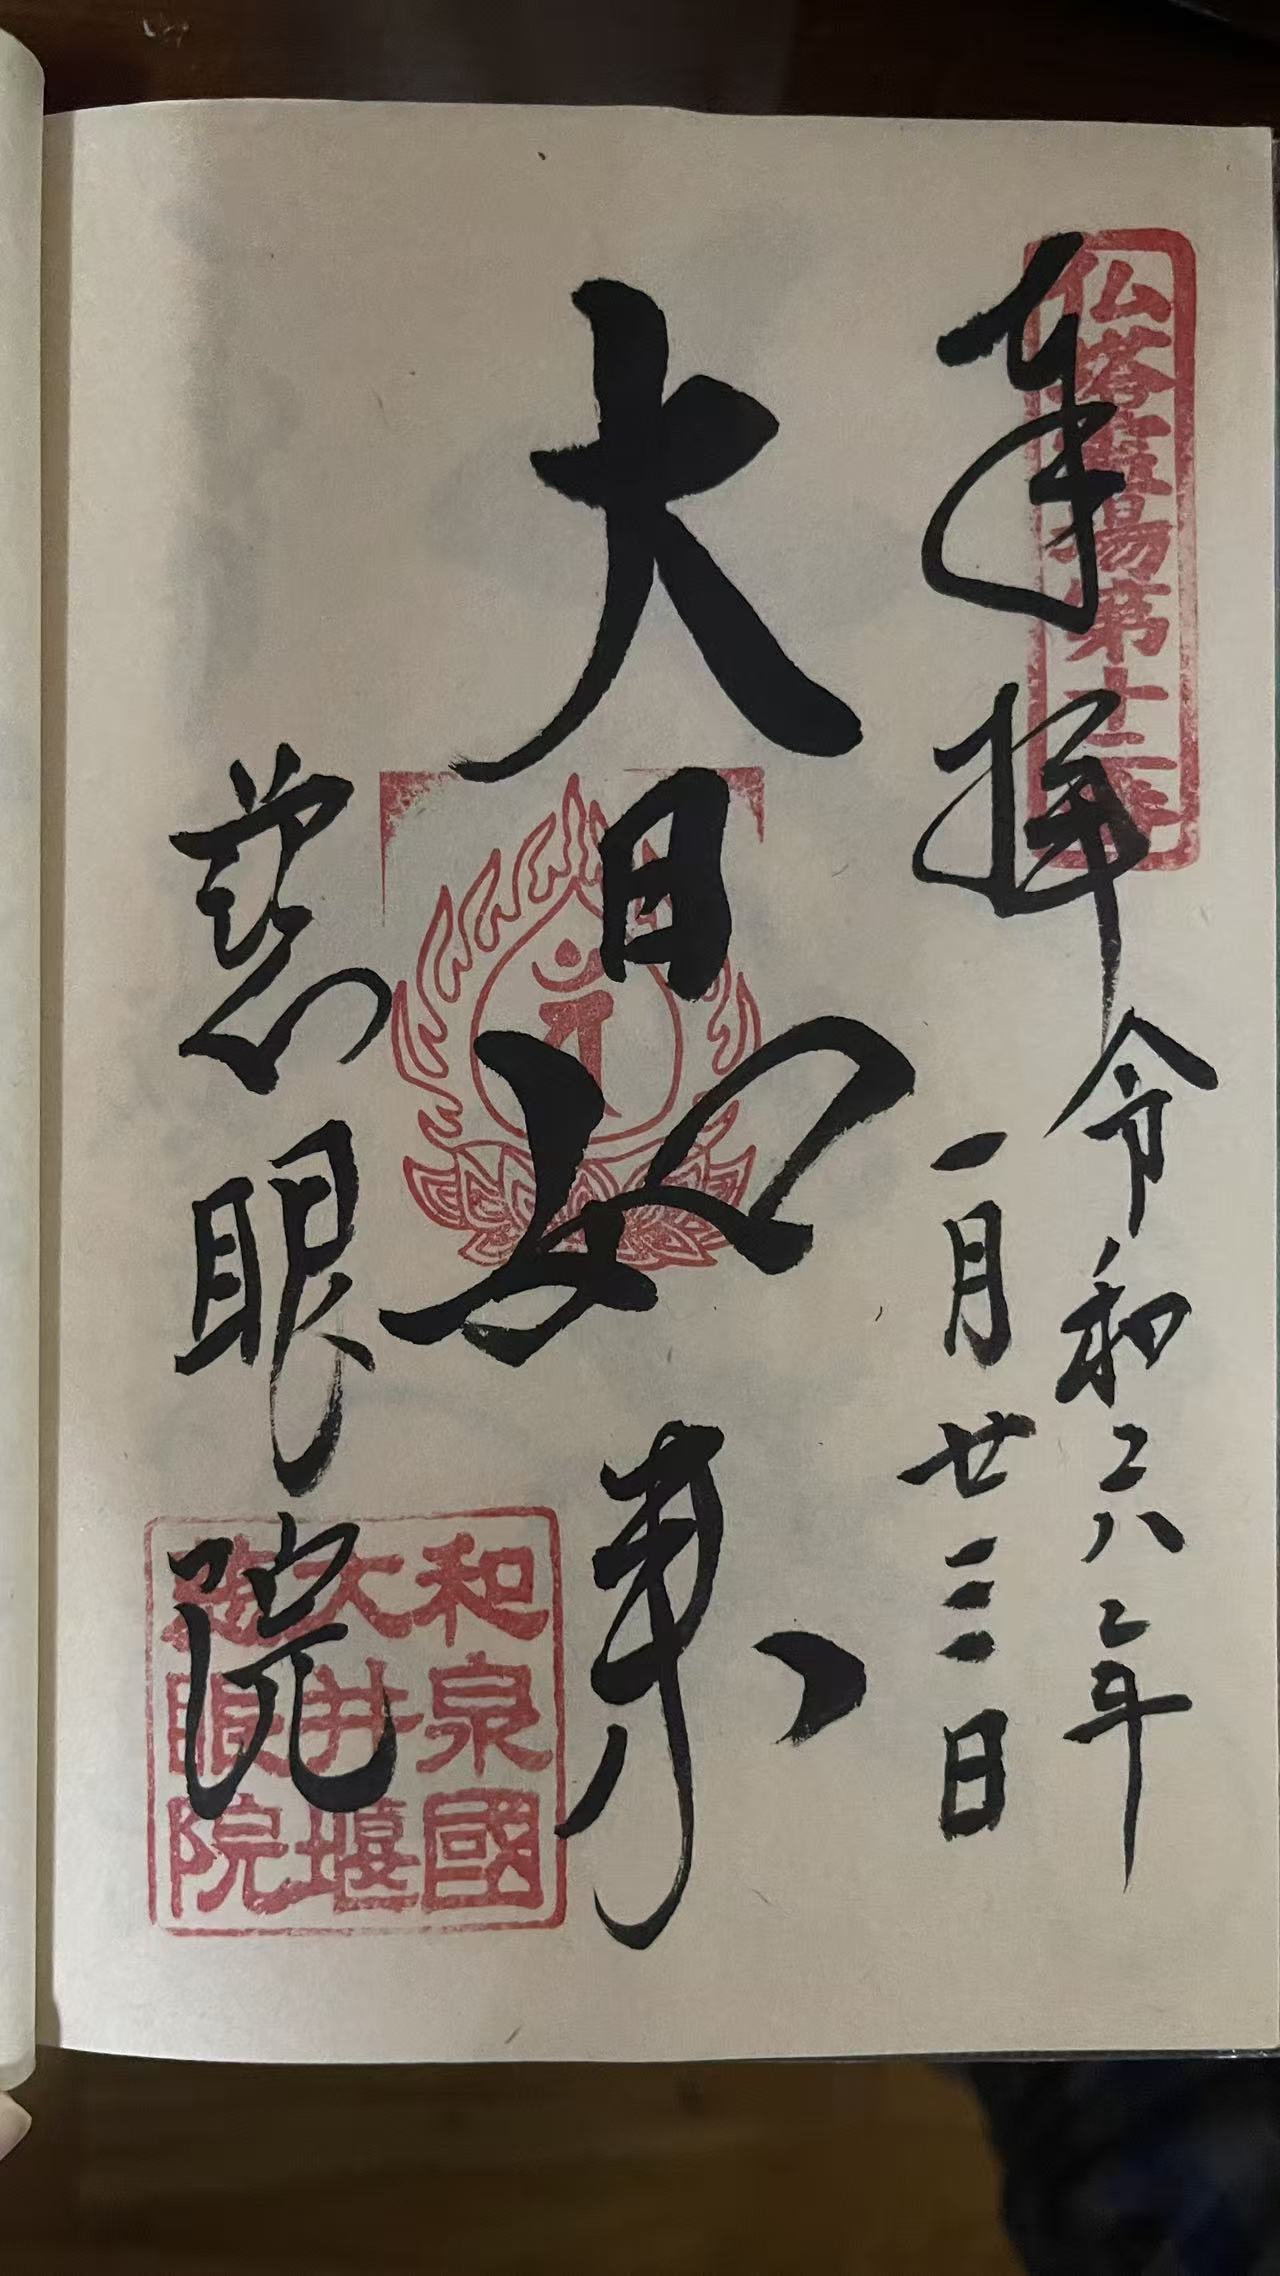 仏塔霊場第十二番
奉拝
令和六年
一月廿三日
大日如来
慈眼院
和泉國
大井堰
慈眼院